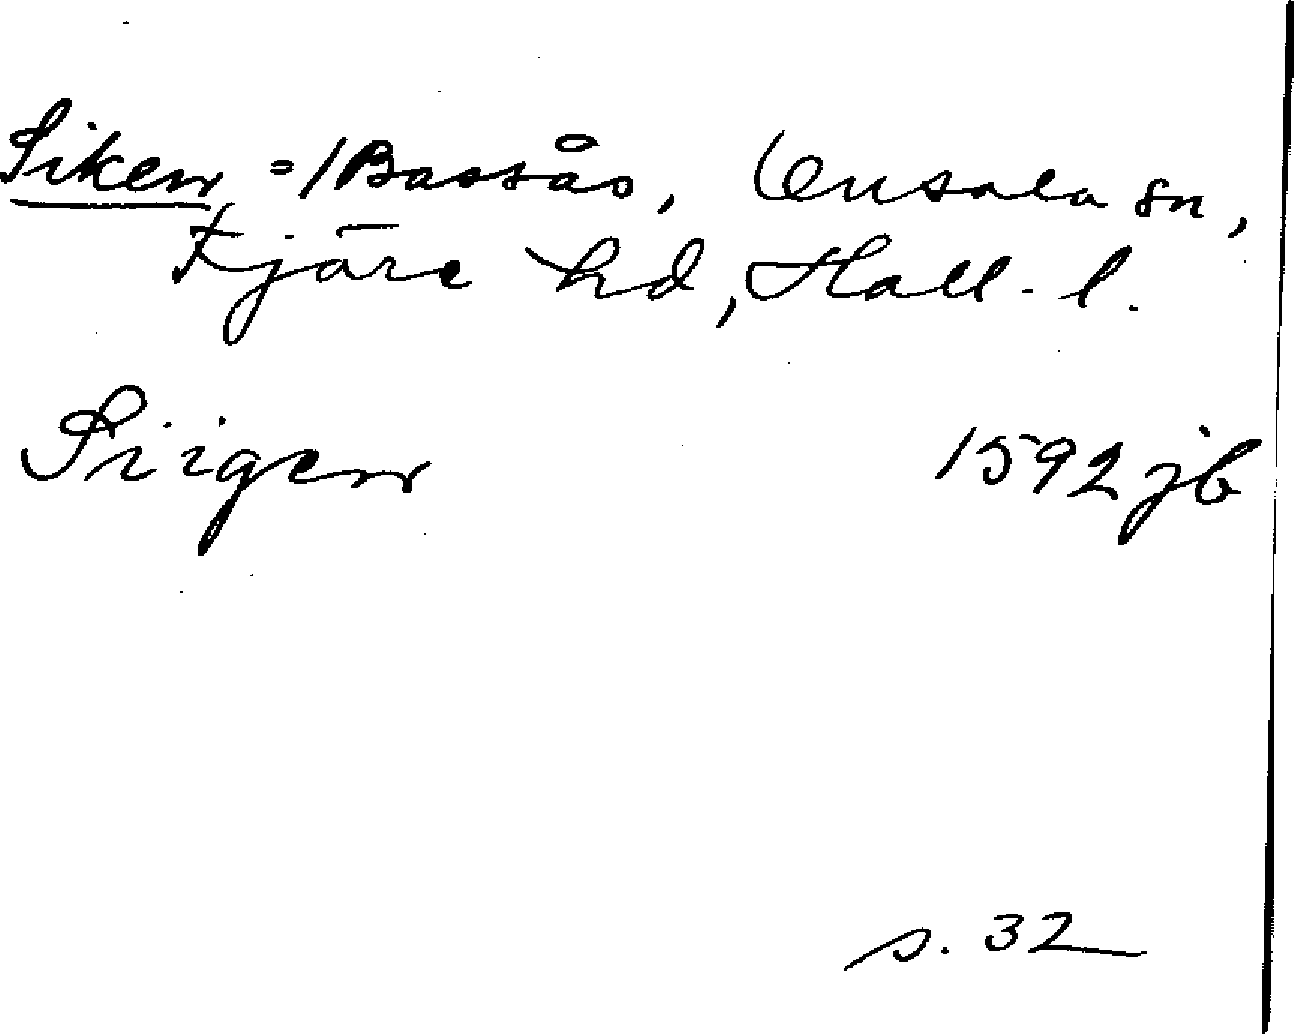 Siken =/Bassås, Onsala sn,
Fjäre hd, Hall. l.
Siigen 1592 jb
s. 32